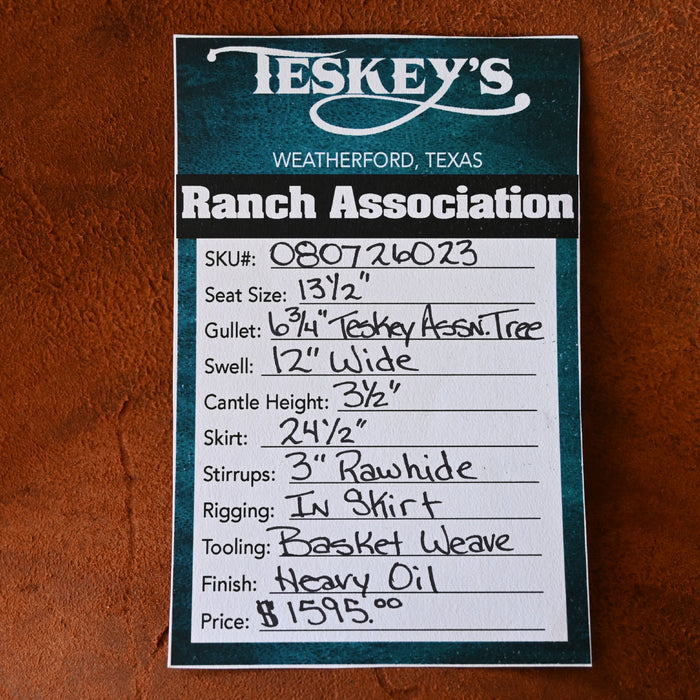 TESKEY'S
WEATHERFORD, TEXAS
Ranch Association
SKU#: 080726023
Seat Size: 13 1/2"
Gullet: 6 3/4" Teskey Assn. Tree
Swell: 12" Wide
Cantle Height: 3 1/2"
Skirt: 24 1/2"
Stirrups: 3" Rawhide
Rigging: In Skirt
Tooling: Basket Weave
Finish: Heavy Oil
Price: $1595.00